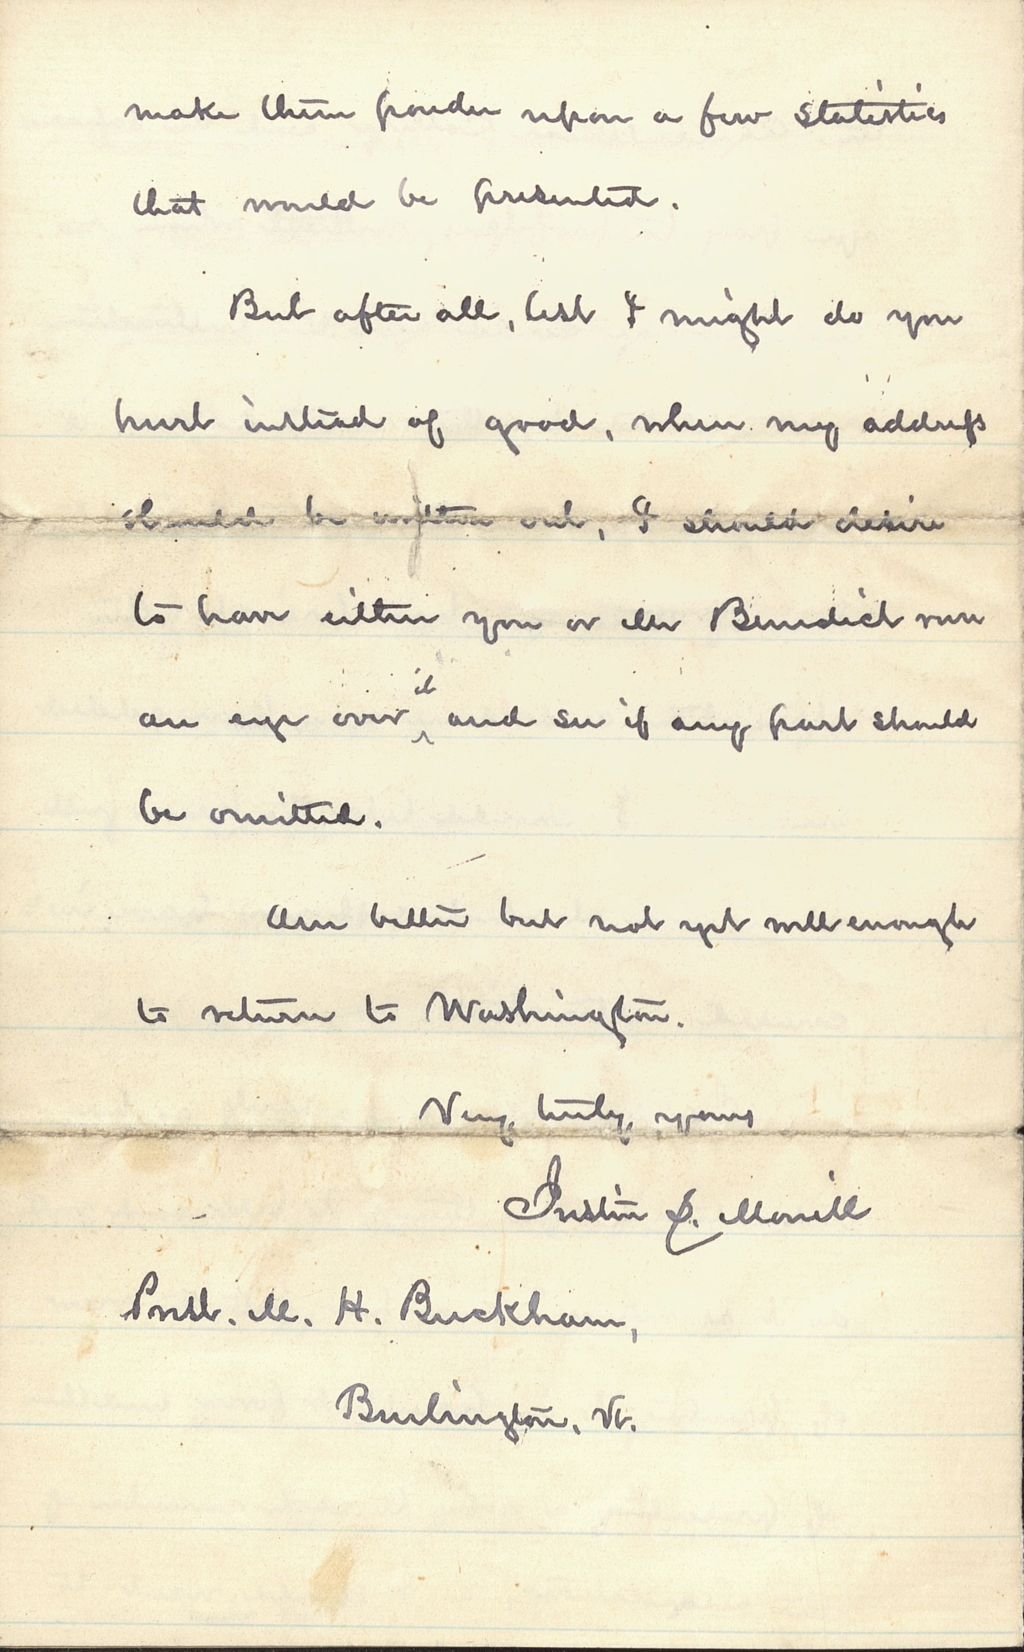 make them ponder upon a few statistics
that would be presented.
But after all, lest I might do you
hurt instead of good, when my address
should be written out, I should desire
to have either you or Mr Benedict run
an eye over it and see if any part should
be omitted.
Am better but not yet well enough
to return to Washington.
Very truly yours
Justin S. Morrill
Prest. M. H. Buckham,
Burlington, Vt.